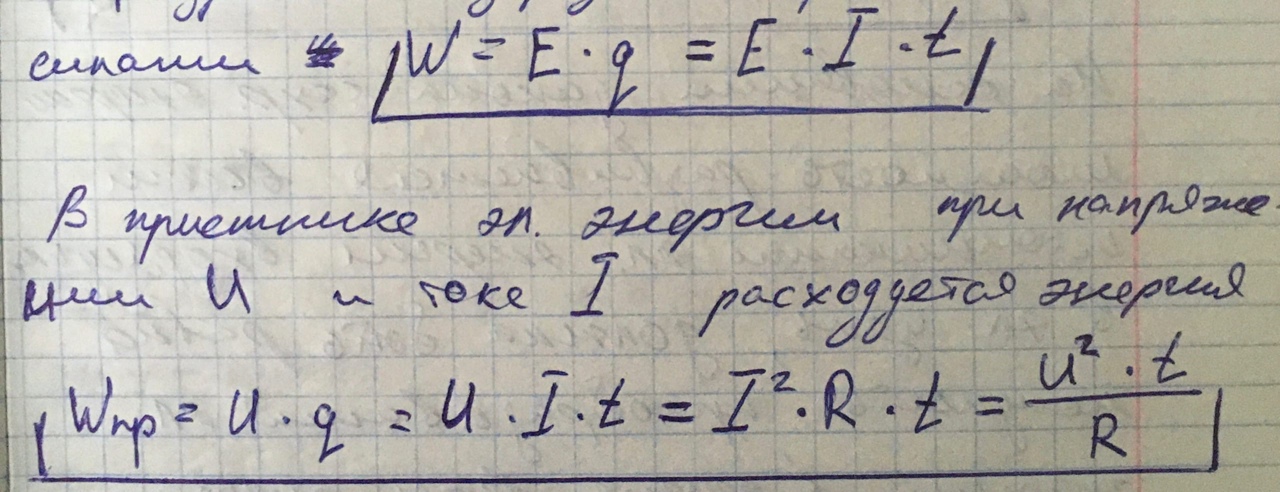 силами W = E · q = E · I · t
В приемнике эл. энергии при напряже-
нии U и токе I расходуется энергия
Wпр = U · q = U · I · t = I² · R · t = U² · t / R